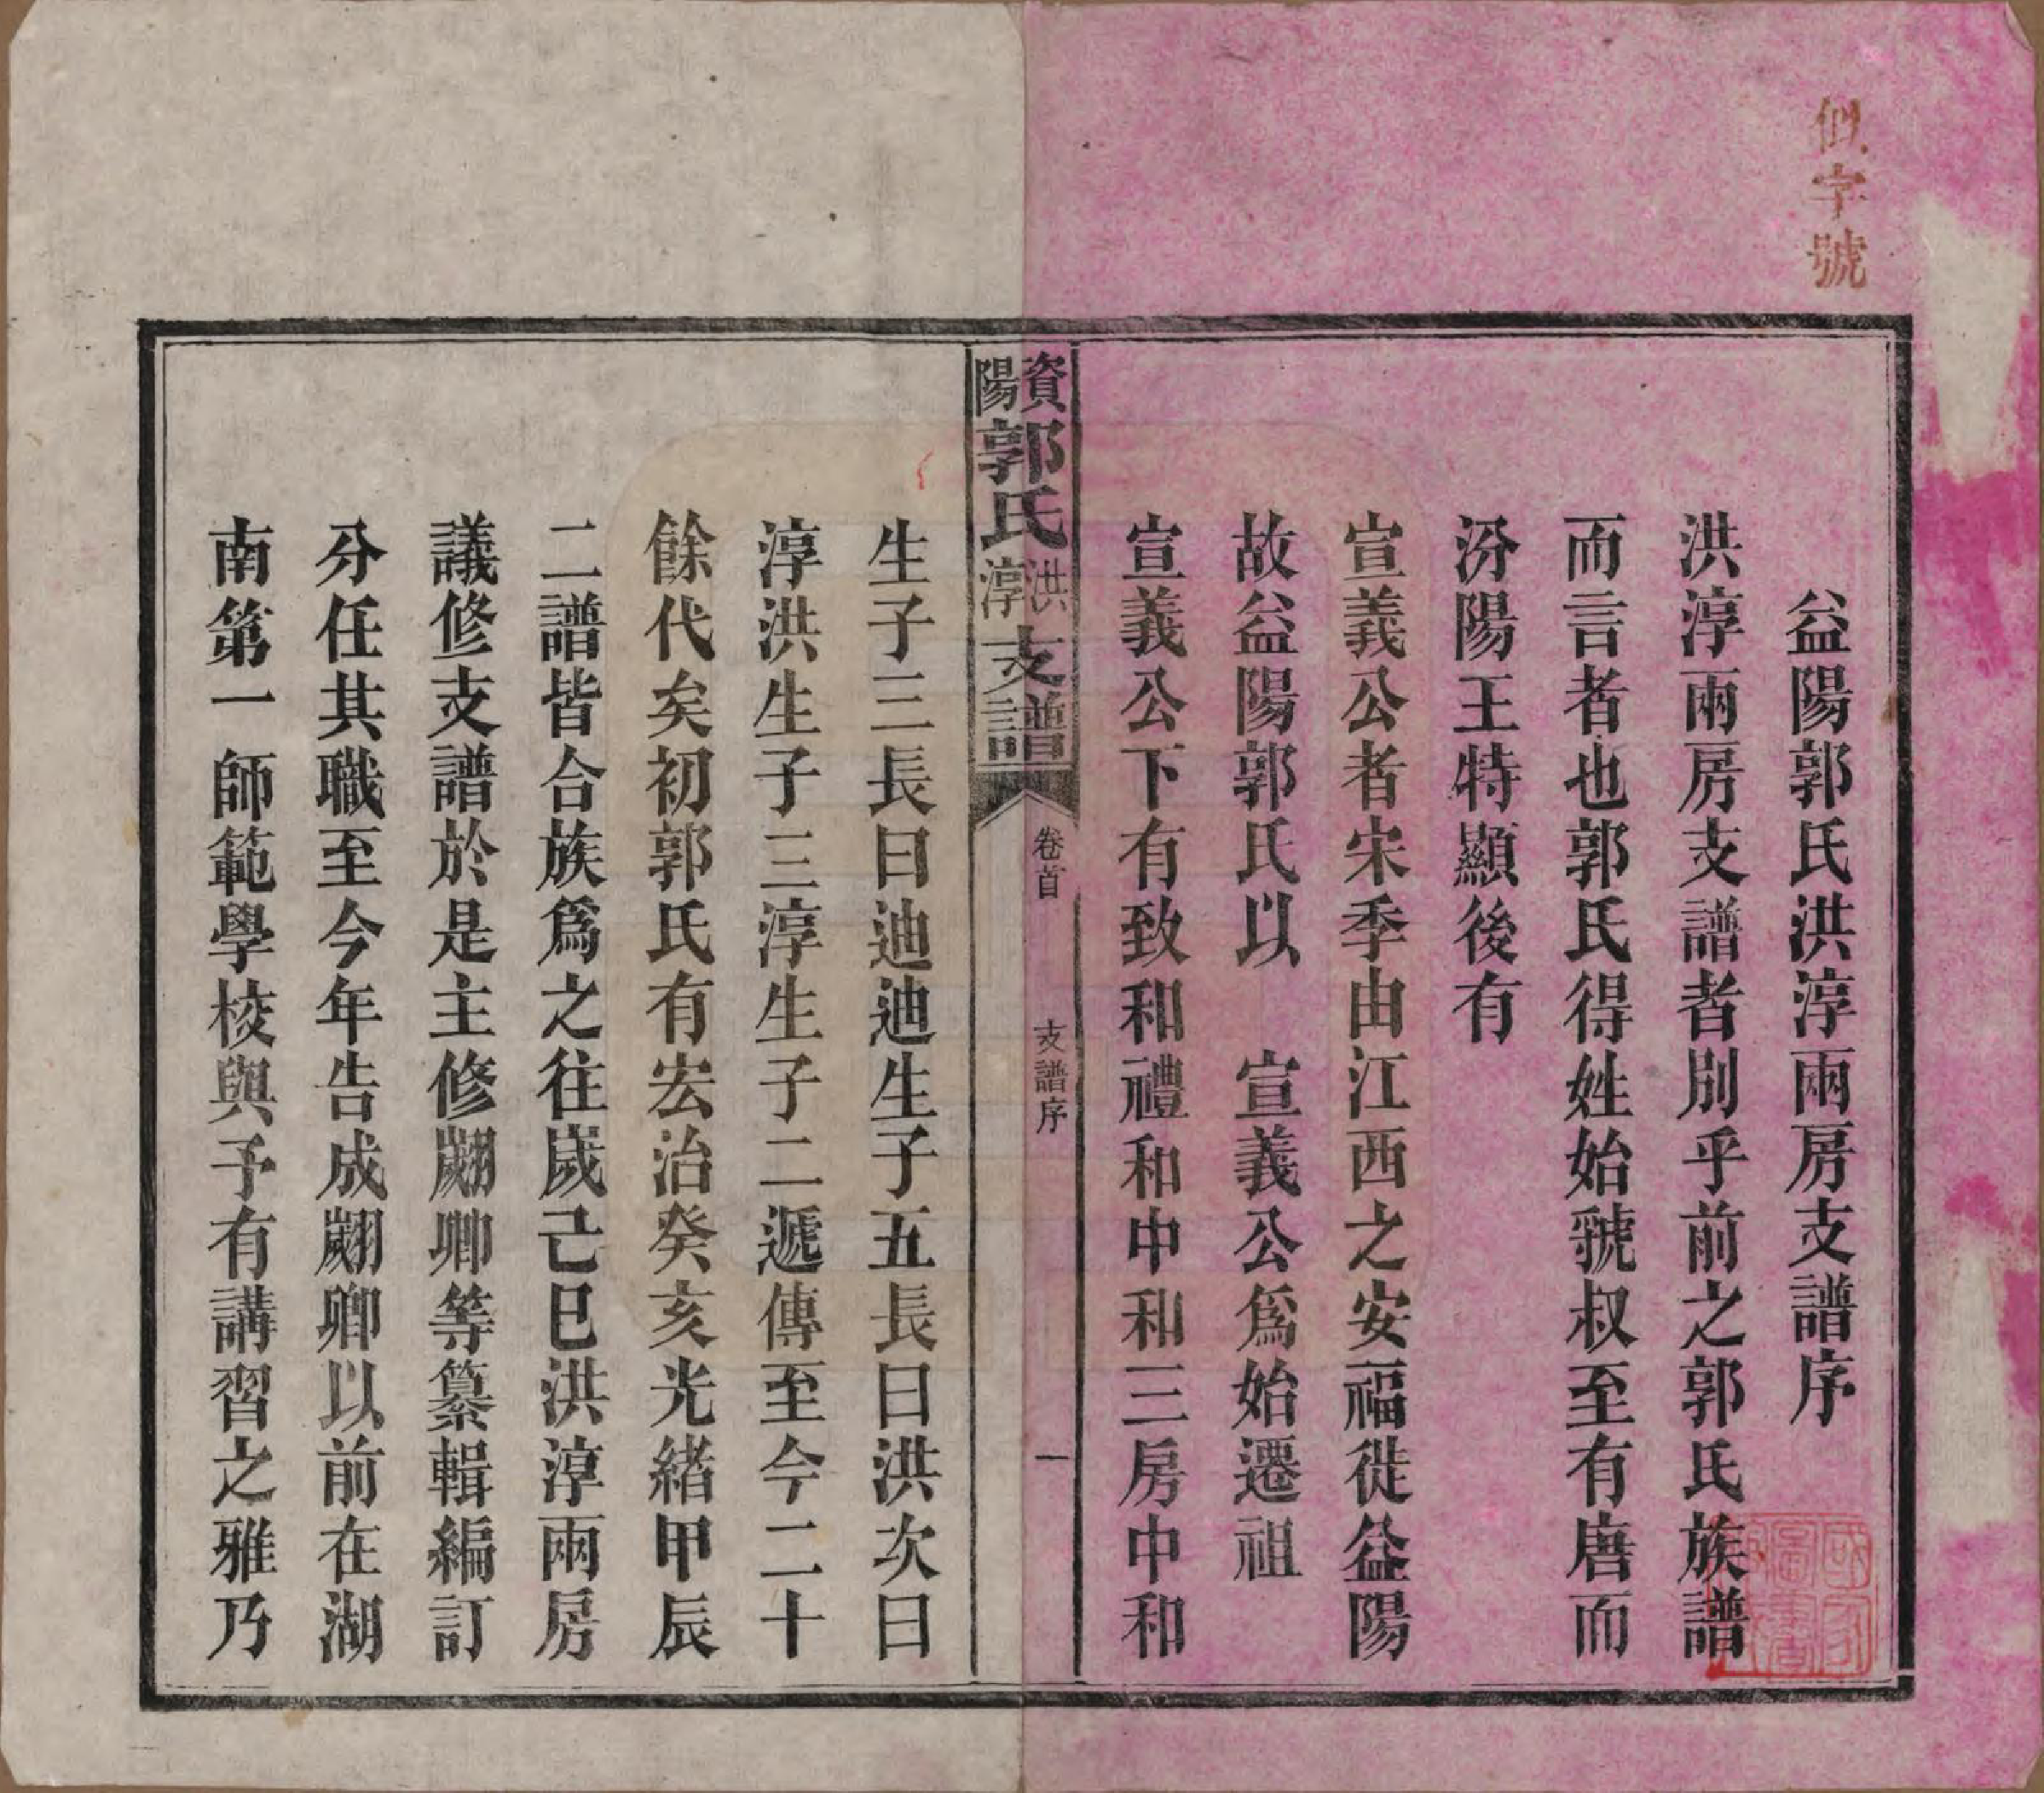 似字號
益陽郭氏洪淳兩房支譜序
洪淳兩房支譜者別乎前之郭氏族譜
而言者也郭氏得姓始虢叔至有唐而
汾陽王特顯後有
宣義公者宋季由江西之安福徙益陽
故益陽郭氏以　宣義公爲始遷祖
宣義公下有致和禮和中和三房中和
資陽郭氏洪淳支譜
卷首
支譜序
一
生子三長曰迪迪生子五長曰洪次曰
淳洪生子三淳生子二遞傳至今二十
餘代矣初郭氏有宏治癸亥光緒甲辰
二譜皆合族爲之往歲己巳洪淳兩房
議修支譜於是主修翽卿等纂輯編訂
分任其職至今年告成翽卿以前在湖
南第一師範學校與予有講習之雅乃